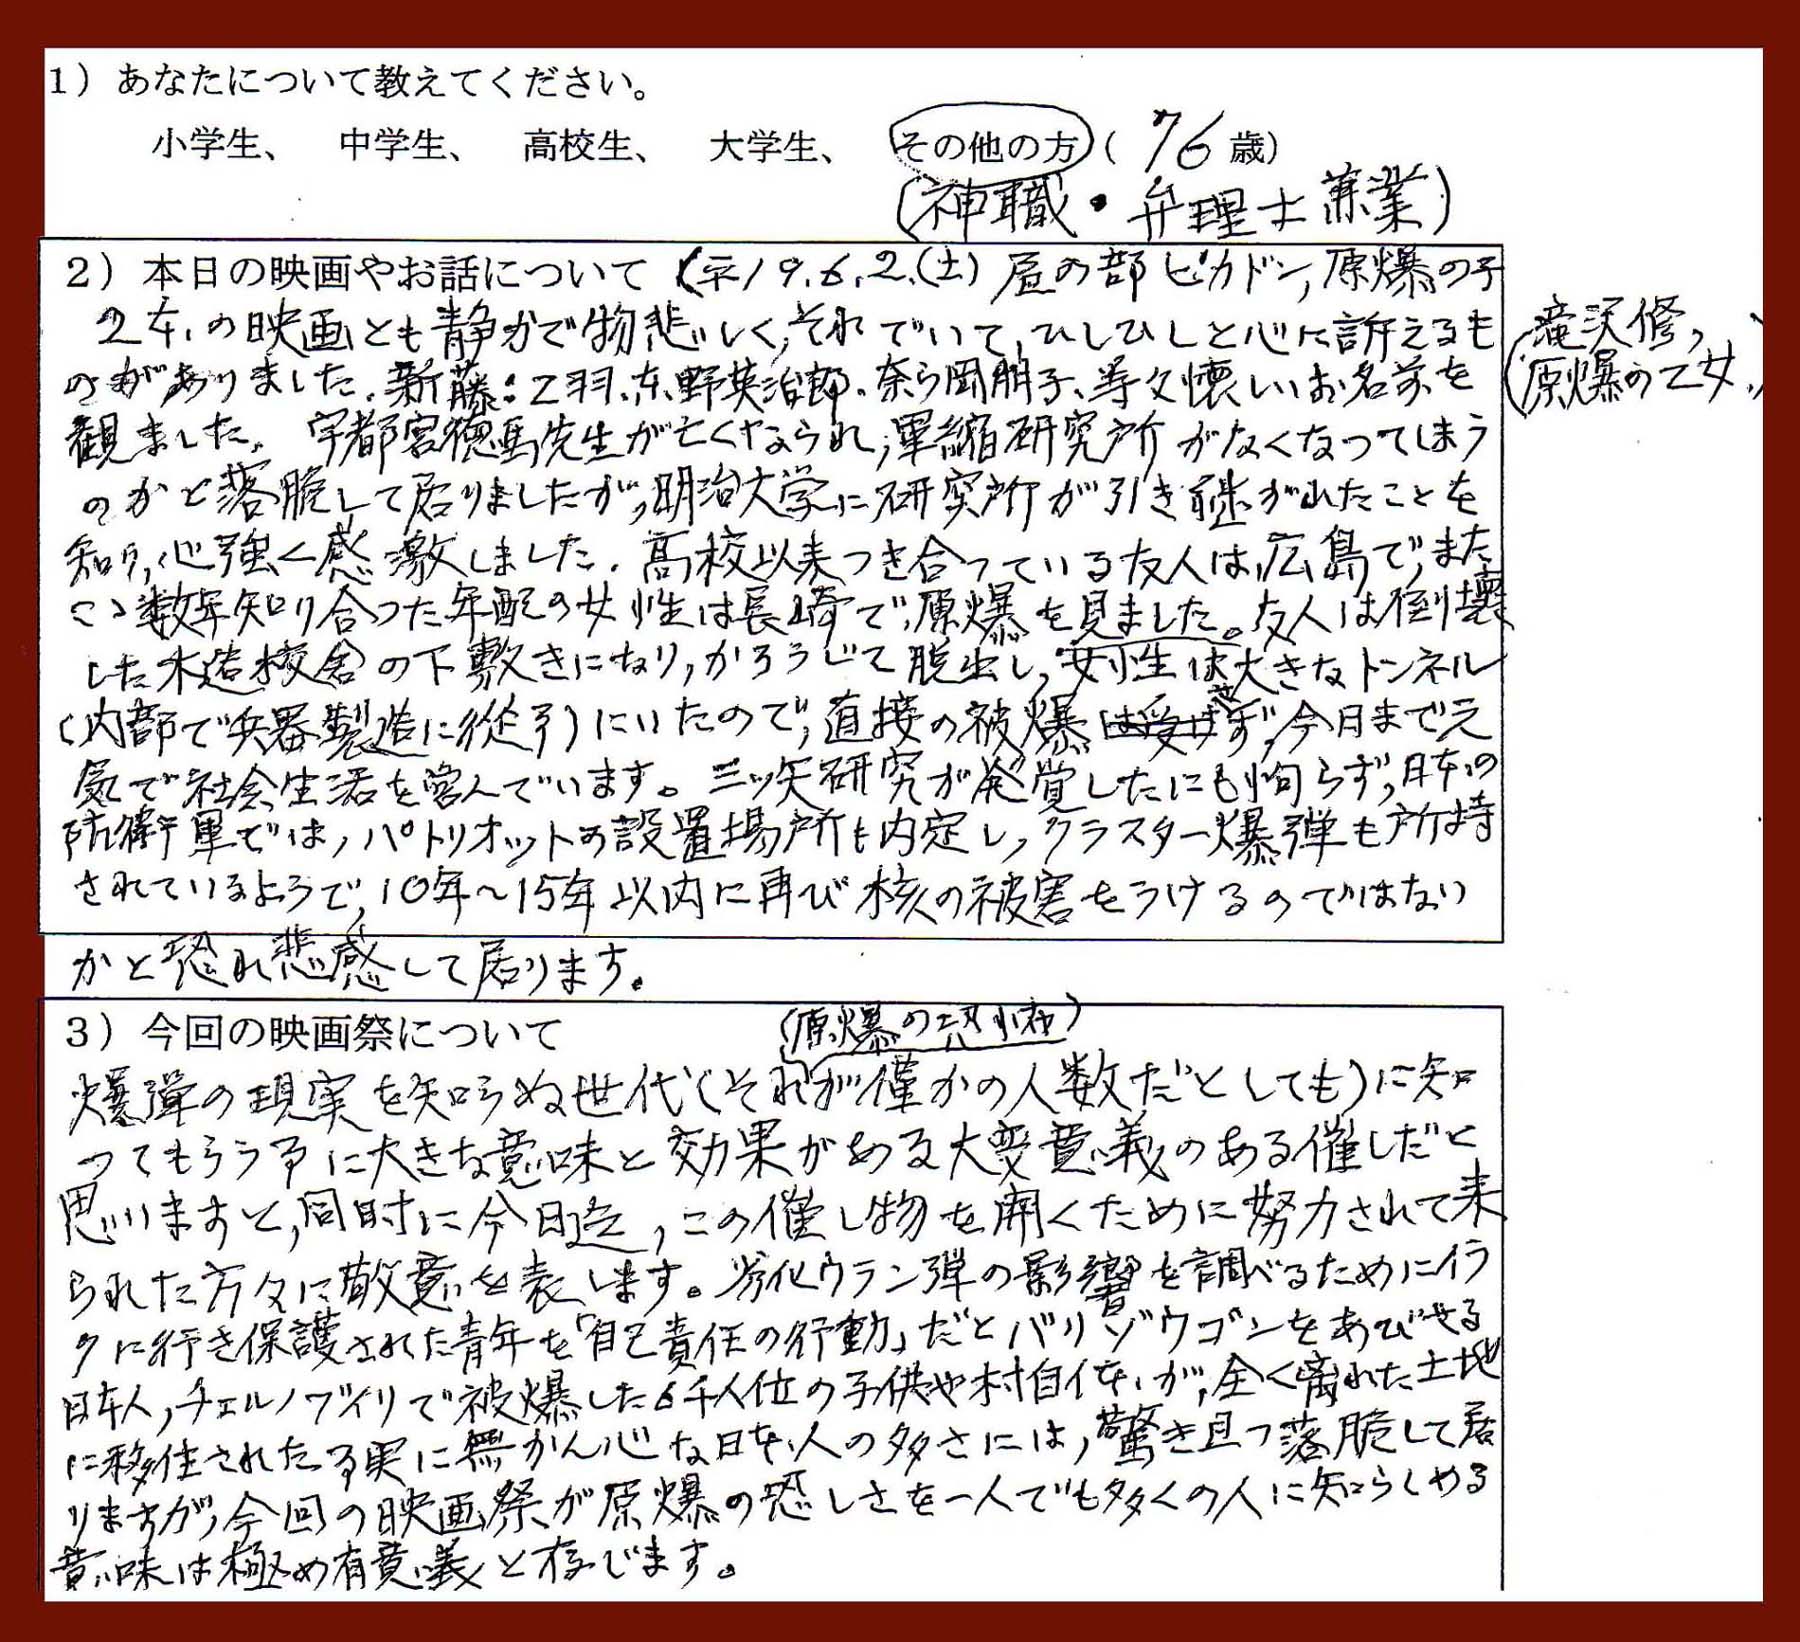 1）あなたについて教えてください。
小学生、 中学生、 高校生、 大学生、 その他の方（ 76 歳）
（神職・弁理士兼業）
2）本日の映画やお話について （平19.6.2.（土）昼の部ピカドン,原爆の子
2本の映画とも静かで物悲しく,それでいて,ひしひしと心に訴えるも
（滝沢修,
のがありました.新藤:乙羽.東野英治郎.奈ら岡朋子、等々懐しいお名前を
（原爆の乙女）
観ました. 宇都宮徳馬先生が亡くなられ,軍縮研究所がなくなってしまう
のかと落胆して居りましたが,明治大学に研究所が引き継がれたことを
知り,心強く感激しました.高校以来つき合っている友人は,広島で,また
こゝ数年知り合った年配の女性は長崎で原爆を見ました。友人は倒壊
した木造校舎の下敷きになり,かろうじて脱出し,女性は大きなトンネル
（内部で兵器製造に従事）にいたので,直接の被爆はせず,今日まで元
気で社会生活を営んでいます。三ッ矢研究が発覚したにも拘らず,日本の
防衛軍では,パトリオットの設置場所も内定し,クラスター爆弾も所持
されているようで,10年〜15年以内に再び核の被害をうけるのではない
かと恐れ悲感して居ります。
3）今回の映画祭について
（原爆の恐怖）
爆弾の現実を知らぬ世代（それが僅かの人数だとしても）に知
ってもらう事に大きな意味と効果がある大変意義のある催しだと
思いますと,同時に今日迄,この催し物を開くために努力されて来
られた方々に敬意を表します。劣化ウラン弾の影響を調べるためにイラ
クに行き保護された青年を「自己責任の行動」だとバリゾウゴンをあびせる
日本人,チェルノブイリで被爆した6千人位の子供や村自体が,全く離れた土地
に移住された事実に無かん心な日本人の多さには,驚き且つ落胆して居
りますが,今回の映画祭が原爆の恐しさを一人でも多くの人に知らしめる
意味は極め有意義と存じます。